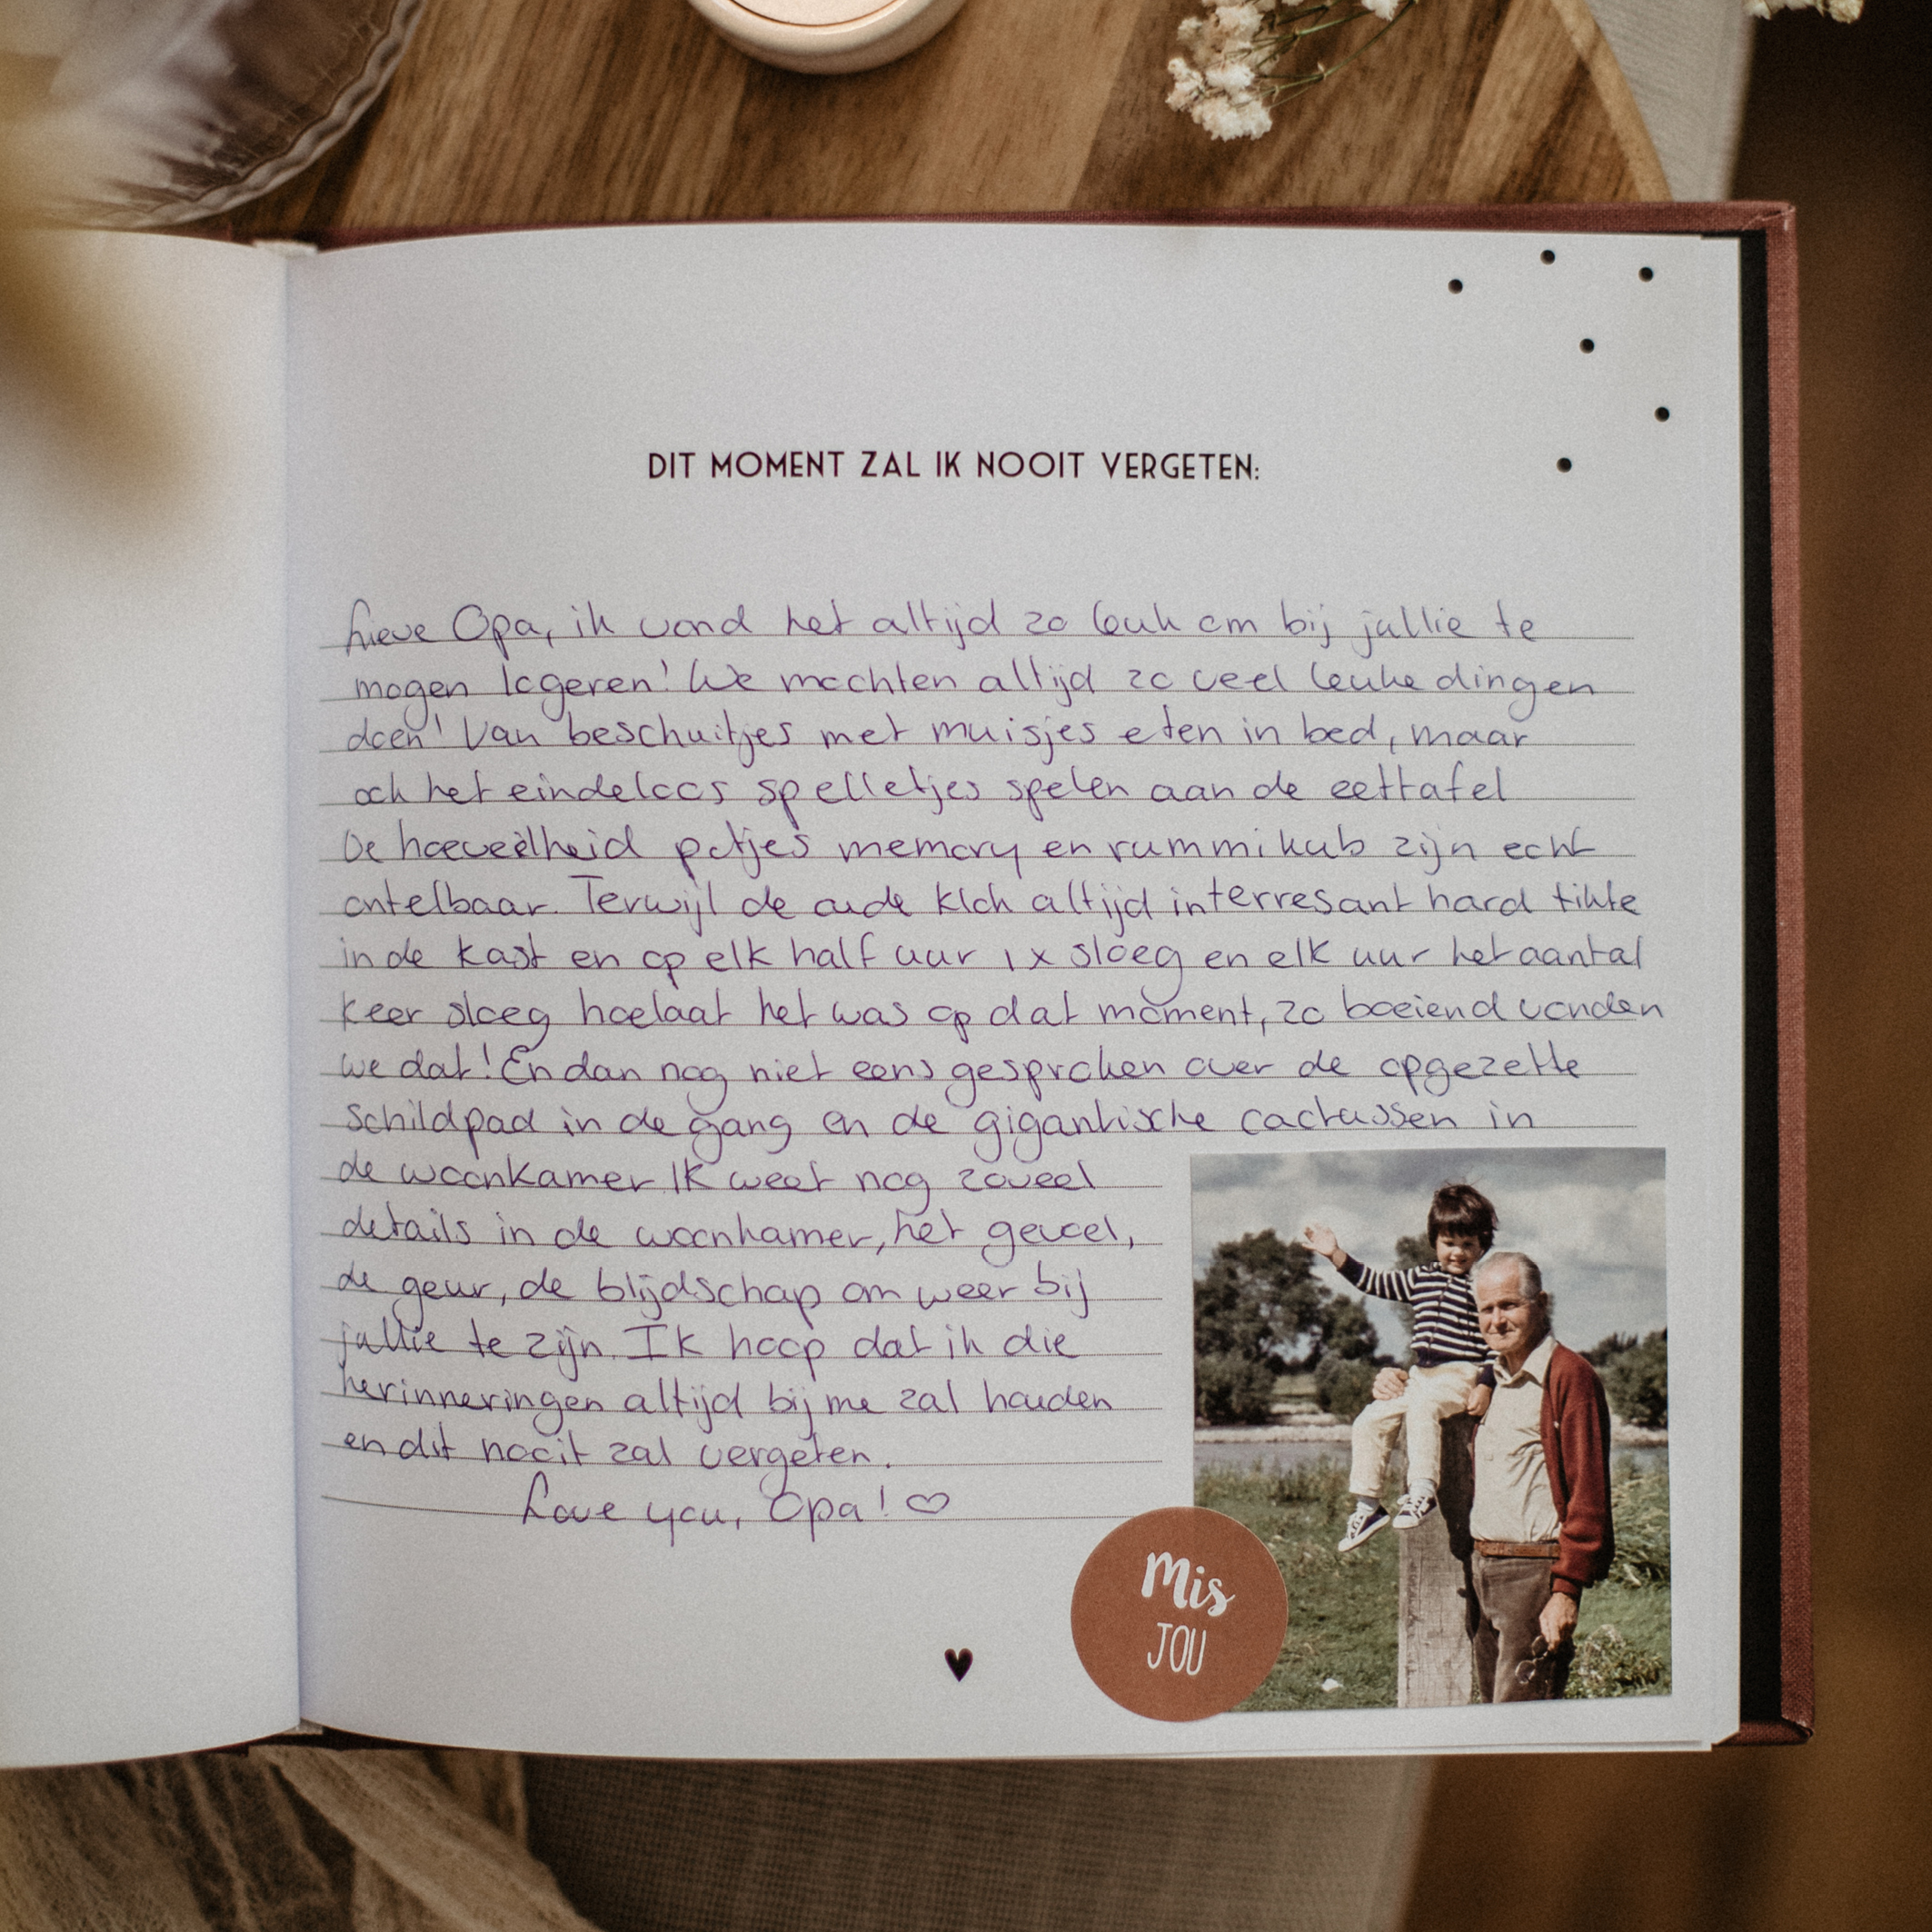 DIT MOMENT ZAL IK NOOIT VERGETEN:
Lieve Opa, ik vond het altijd zo leuk om bij jullie te
mogen logeren! We mochten altijd zo veel leuke dingen
doen! Van beschuitjes met muisjes eten in bed, maar
ook het eindeloos spelletjes spelen aan de eettafel
De hoeveelheid potjes memory en rummikub zijn echt
ontelbaar. Terwijl de oude klok altijd interresant hard tikte
in de kast en op elk half uur 1x sloeg en elk uur het aantal
keer sloeg hoelaat het was op dat moment, zo boeiend vonden
we dat! En dan nog niet eens gesproken over de opgezette
schildpad in de gang en de gigantische cactussen in
de woonkamer. Ik weet nog zoveel
details in de woonkamer, het gevoel,
de geur, de blijdschap om weer bij
jullie te zijn. Ik hoop dat ik die
herinneringen altijd bij me zal houden
en dit nooit zal vergeten.
Love you, Opa! ♡
Mis
JOU